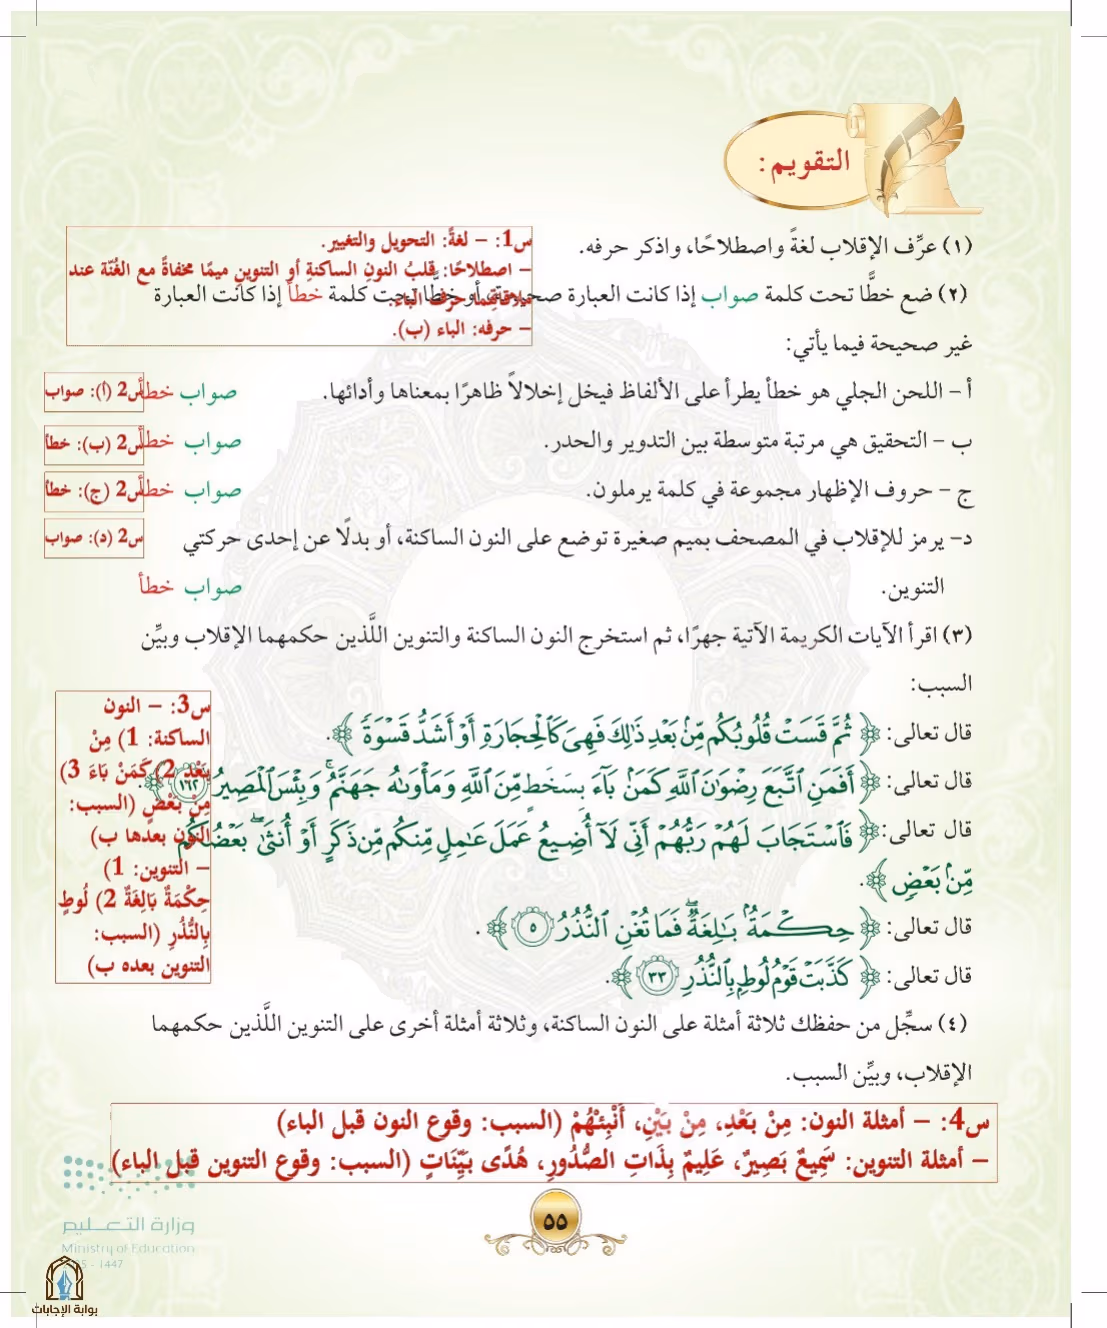 التقويم:
(١) عرِّف الإقلاب لغةً واصطلاحًا، واذكر حرفه.
س1: – لغةً: التحويل والتغيير.
– اصطلاحًا: قلبُ النونِ الساكنةِ أو التنوينِ ميمًا مخفاةً مع الغُنّة عند
ملاقاتهما حرفَ الباء.
– حرفه: الباء (ب).
(٢) ضع خطًّا تحت كلمة صواب إذا كانت العبارة صحيحة، أو خطًّا تحت كلمة خطأ إذا كانت العبارة
غير صحيحة فيما يأتي:
أ – اللحن الجلي هو خطأ يطرأ على الألفاظ فيخل إخلالاً ظاهرًا بمعناها وأدائها. صواب خطأ
س2 (أ): صواب
ب – التحقيق هي مرتبة متوسطة بين التدوير والحدر. صواب خطأ
س2 (ب): خطأ
ج – حروف الإظهار مجموعة في كلمة يرملون. صواب خطأ
س2 (ج): خطأ
د– يرمز للإقلاب في المصحف بميم صغيرة توضع على النون الساكنة، أو بدلًا عن إحدى حركتي
س2 (د): صواب
التنوين. صواب خطأ
(٣) اقرأ الآيات الكريمة الآتية جهرًا، ثم استخرج النون الساكنة والتنوين اللَّذين حكمهما الإقلاب وبيِّن
السبب:
قال تعالى: ﴿ ثُمَّ قَسَتْ قُلُوبُكُم مِّنۢ بَعْدِ ذَٰلِكَ فَهِىَ كَٱلْحِجَارَةِ أَوْ أَشَدُّ قَسْوَةً ﴾.
قال تعالى: ﴿ أَفَمَنِ ٱتَّبَعَ رِضْوَٰنَ ٱللَّهِ كَمَنۢ بَآءَ بِسَخَطٍ مِّنَ ٱللَّهِ وَمَأْوَىٰهُ جَهَنَّمُ ۚ وَبِئْسَ ٱلْمَصِيرُ ١٦٢ ﴾.
قال تعالى: ﴿ فَٱسْتَجَابَ لَهُمْ رَبُّهُمْ أَنِّى لَآ أُضِيعُ عَمَلَ عَٰمِلٍ مِّنكُم مِّن ذَكَرٍ أَوْ أُنثَىٰ ۖ بَعْضُكُم
مِّنۢ بَعْضٍ ﴾.
قال تعالى: ﴿ حِكْمَةٌۢ بَٰلِغَةٌ ۖ فَمَا تُغْنِ ٱلنُّذُرُ ٥ ﴾.
قال تعالى: ﴿ كَذَّبَتْ قَوْمُ لُوطٍۭ بِٱلنُّذُرِ ٣٣ ﴾.
س3: – النون
الساكنة: 1) مِنْ
بَعْدِ 2) كَمَنْ بَاءَ 3)
مِنْ بَعْضٍ (السبب:
النون بعدها ب)
– التنوين: 1)
حِكْمَةٌ بَالِغَةٌ 2) لُوطٍ
بِالنُّذُرِ (السبب:
التنوين بعده ب)
(٤) سجِّل من حفظك ثلاثة أمثلة على النون الساكنة، وثلاثة أمثلة أخرى على التنوين اللَّذين حكمهما
الإقلاب، وبيِّن السبب.
س4: – أمثلة النون: مِنْ بَعْدِ، مِنْ بَيْنِ، أَنْبِئْهُمْ (السبب: وقوع النون قبل الباء)
– أمثلة التنوين: سَمِيعٌ بَصِيرٌ، عَلِيمٌ بِذَاتِ الصُّدُورِ، هُدًى بَيِّنَاتٍ (السبب: وقوع التنوين قبل الباء)
وزارة التعليم
Ministry of Education
1447 -
٥٥
بوابة الإجابات